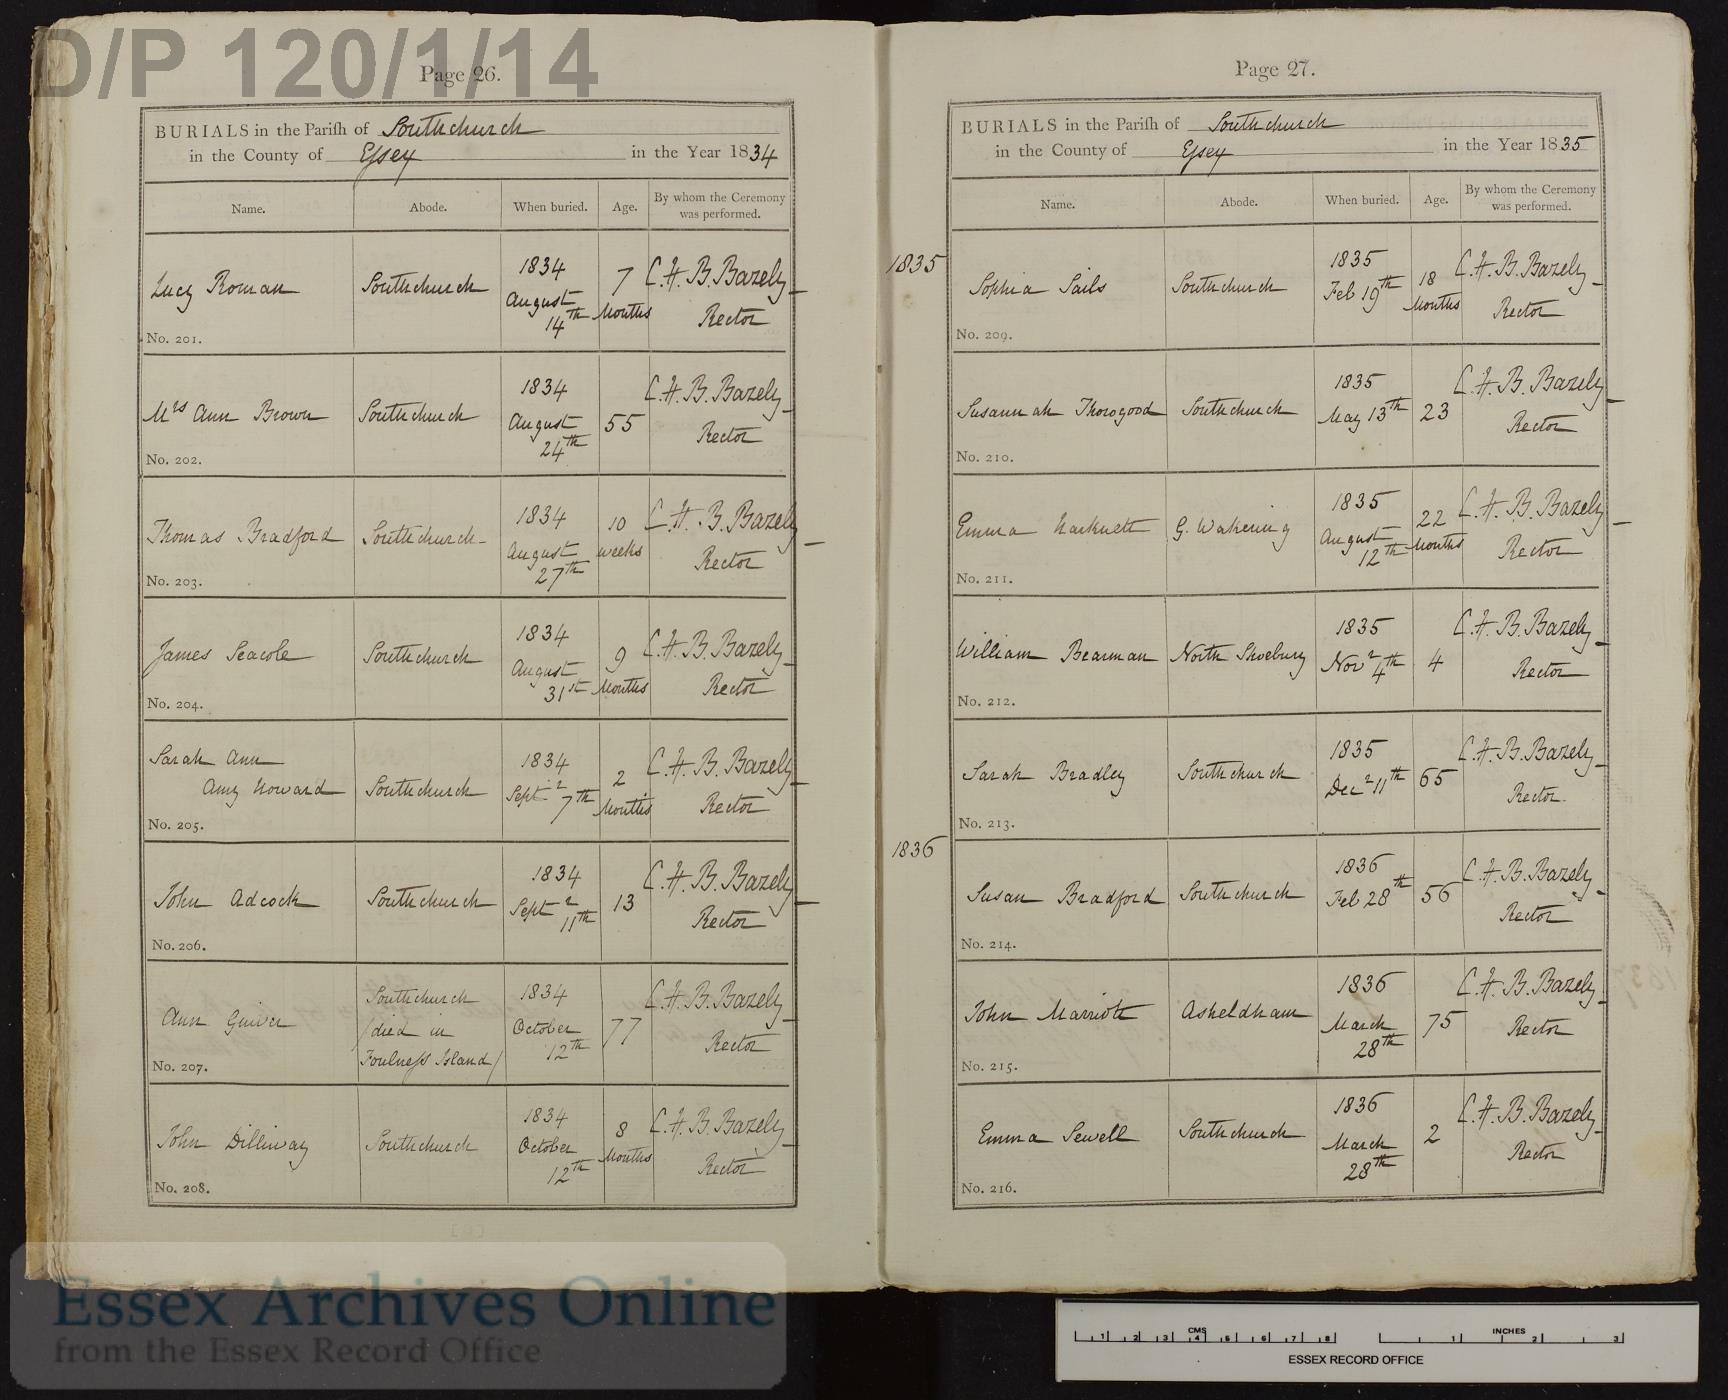 D/P 120/1/14
Page 26.
BURIALS in the Parish of Southchurch
in the County of Essex in the Year 1834
Name. Abode. When buried. Age. By whom the Ceremony was performed.
Lucy Roman Southchurch 1834 August 14th 7 Months C.H.B. Bazely Rector
No. 201.
Mrs Ann Brown Southchurch 1834 August 24th 55 C.H.B. Bazely Rector
No. 202.
Thomas Bradford Southchurch 1834 August 27th 10 weeks C.H.B. Bazely Rector
No. 203.
James Seacole Southchurch 1834 August 31st 9 Months C.H.B. Bazely Rector
No. 204.
Sarah Ann
Amy Howard Southchurch 1834 Septr 7th 2 Months C.H.B. Bazely Rector
No. 205.
John Adcock Southchurch 1834 Septr 11th 13 C.H.B. Bazely Rector
No. 206.
Ann Guiver Southchurch /died in Foulness Island/ 1834 October 12th 77 C.H.B. Bazely Rector
No. 207.
John Dilliway Southchurch 1834 October 12th 8 Months C.H.B. Bazely Rector
No. 208.
Page 27.
BURIALS in the Parish of Southchurch
in the County of Essex in the Year 1835
Name. Abode. When buried. Age. By whom the Ceremony was performed.
1835
Sophia Sails Southchurch 1835 Feb 19th 18 Months C.H.B. Bazely Rector
No. 209.
Susannah Thorogood Southchurch 1835 May 13th 23 C.H.B. Bazely Rector
No. 210.
Emma Harknett G. Wakering 1835 August 12th 22 Months C.H.B. Bazely Rector
No. 211.
William Bearman North Shoebury 1835 Novr 4th 4 C.H.B. Bazely Rector
No. 212.
Sarah Bradley Southchurch 1835 Decr 11th 65 C.H.B. Bazely Rector
No. 213.
1836
Susan Bradford Southchurch 1836 Feb 28th 56 C.H.B. Bazely Rector
No. 214.
John Marriott Asheldham 1836 March 28th 75 C.H.B. Bazely Rector
No. 215.
Emma Sewell Southchurch 1836 March 28th 2 C.H.B. Bazely Rector
No. 216.
Essex Archives Online
from the Essex Record Office
CMS
1 2 3 4 5 6 7 8
INCHES
1 2 3
ESSEX RECORD OFFICE